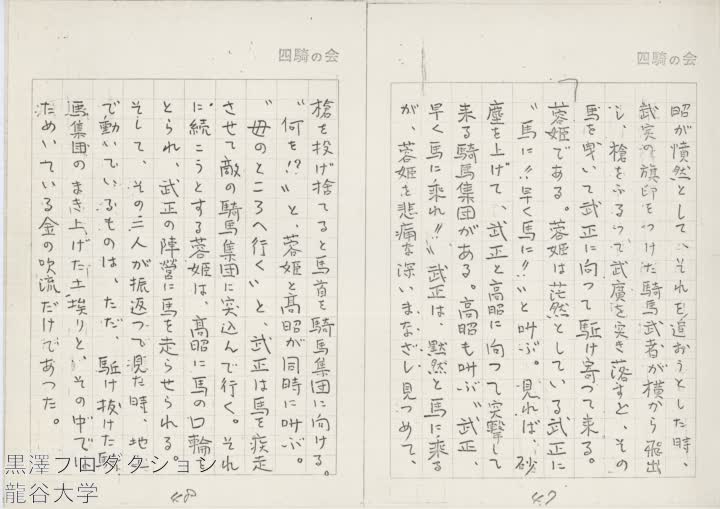 四騎の会
昭が憤然として、それを追おうとした時、
武実の旗印をつけた騎馬武者が横から飛出
し、槍をふるつて武廣を突き落すと、その
馬を曳いて武正に向つて駈け寄つて来る。
蓉姫である。蓉姫は茫然としている武正に
〝馬に!!早く馬に!!〟と叫ぶ。見れば、砂
塵を上げて、武正と高昭に向つて突撃して
来る騎馬集団がある。高昭も叫ぶ〝武正、
早く馬に乘れ!!〟武正は、黙然と馬に乘る
が、蓉姫を悲痛な深いまなざし見つめて、
47
四騎の会
槍を投げ捨てると馬首を騎馬集団に向ける。
〝何を!?〟と、蓉姫と高昭が同時に叫ぶ。
〝母のところへ行く〟と、武正は馬を疾走
させて敵の騎馬集団に突込んで行く。それ
に続こうとする蓉姫は、高昭に馬の口輪を
とられ、武正の陣営に馬を走らせられる。
そして、その二人が振返つて見た時、地上
で動いているものは、ただ、駈け抜けた騎
馬集団のまき上げた土埃りと、その中では
ためいている金の吹流だけであつた。
48
黒澤プロダクション
龍谷大学